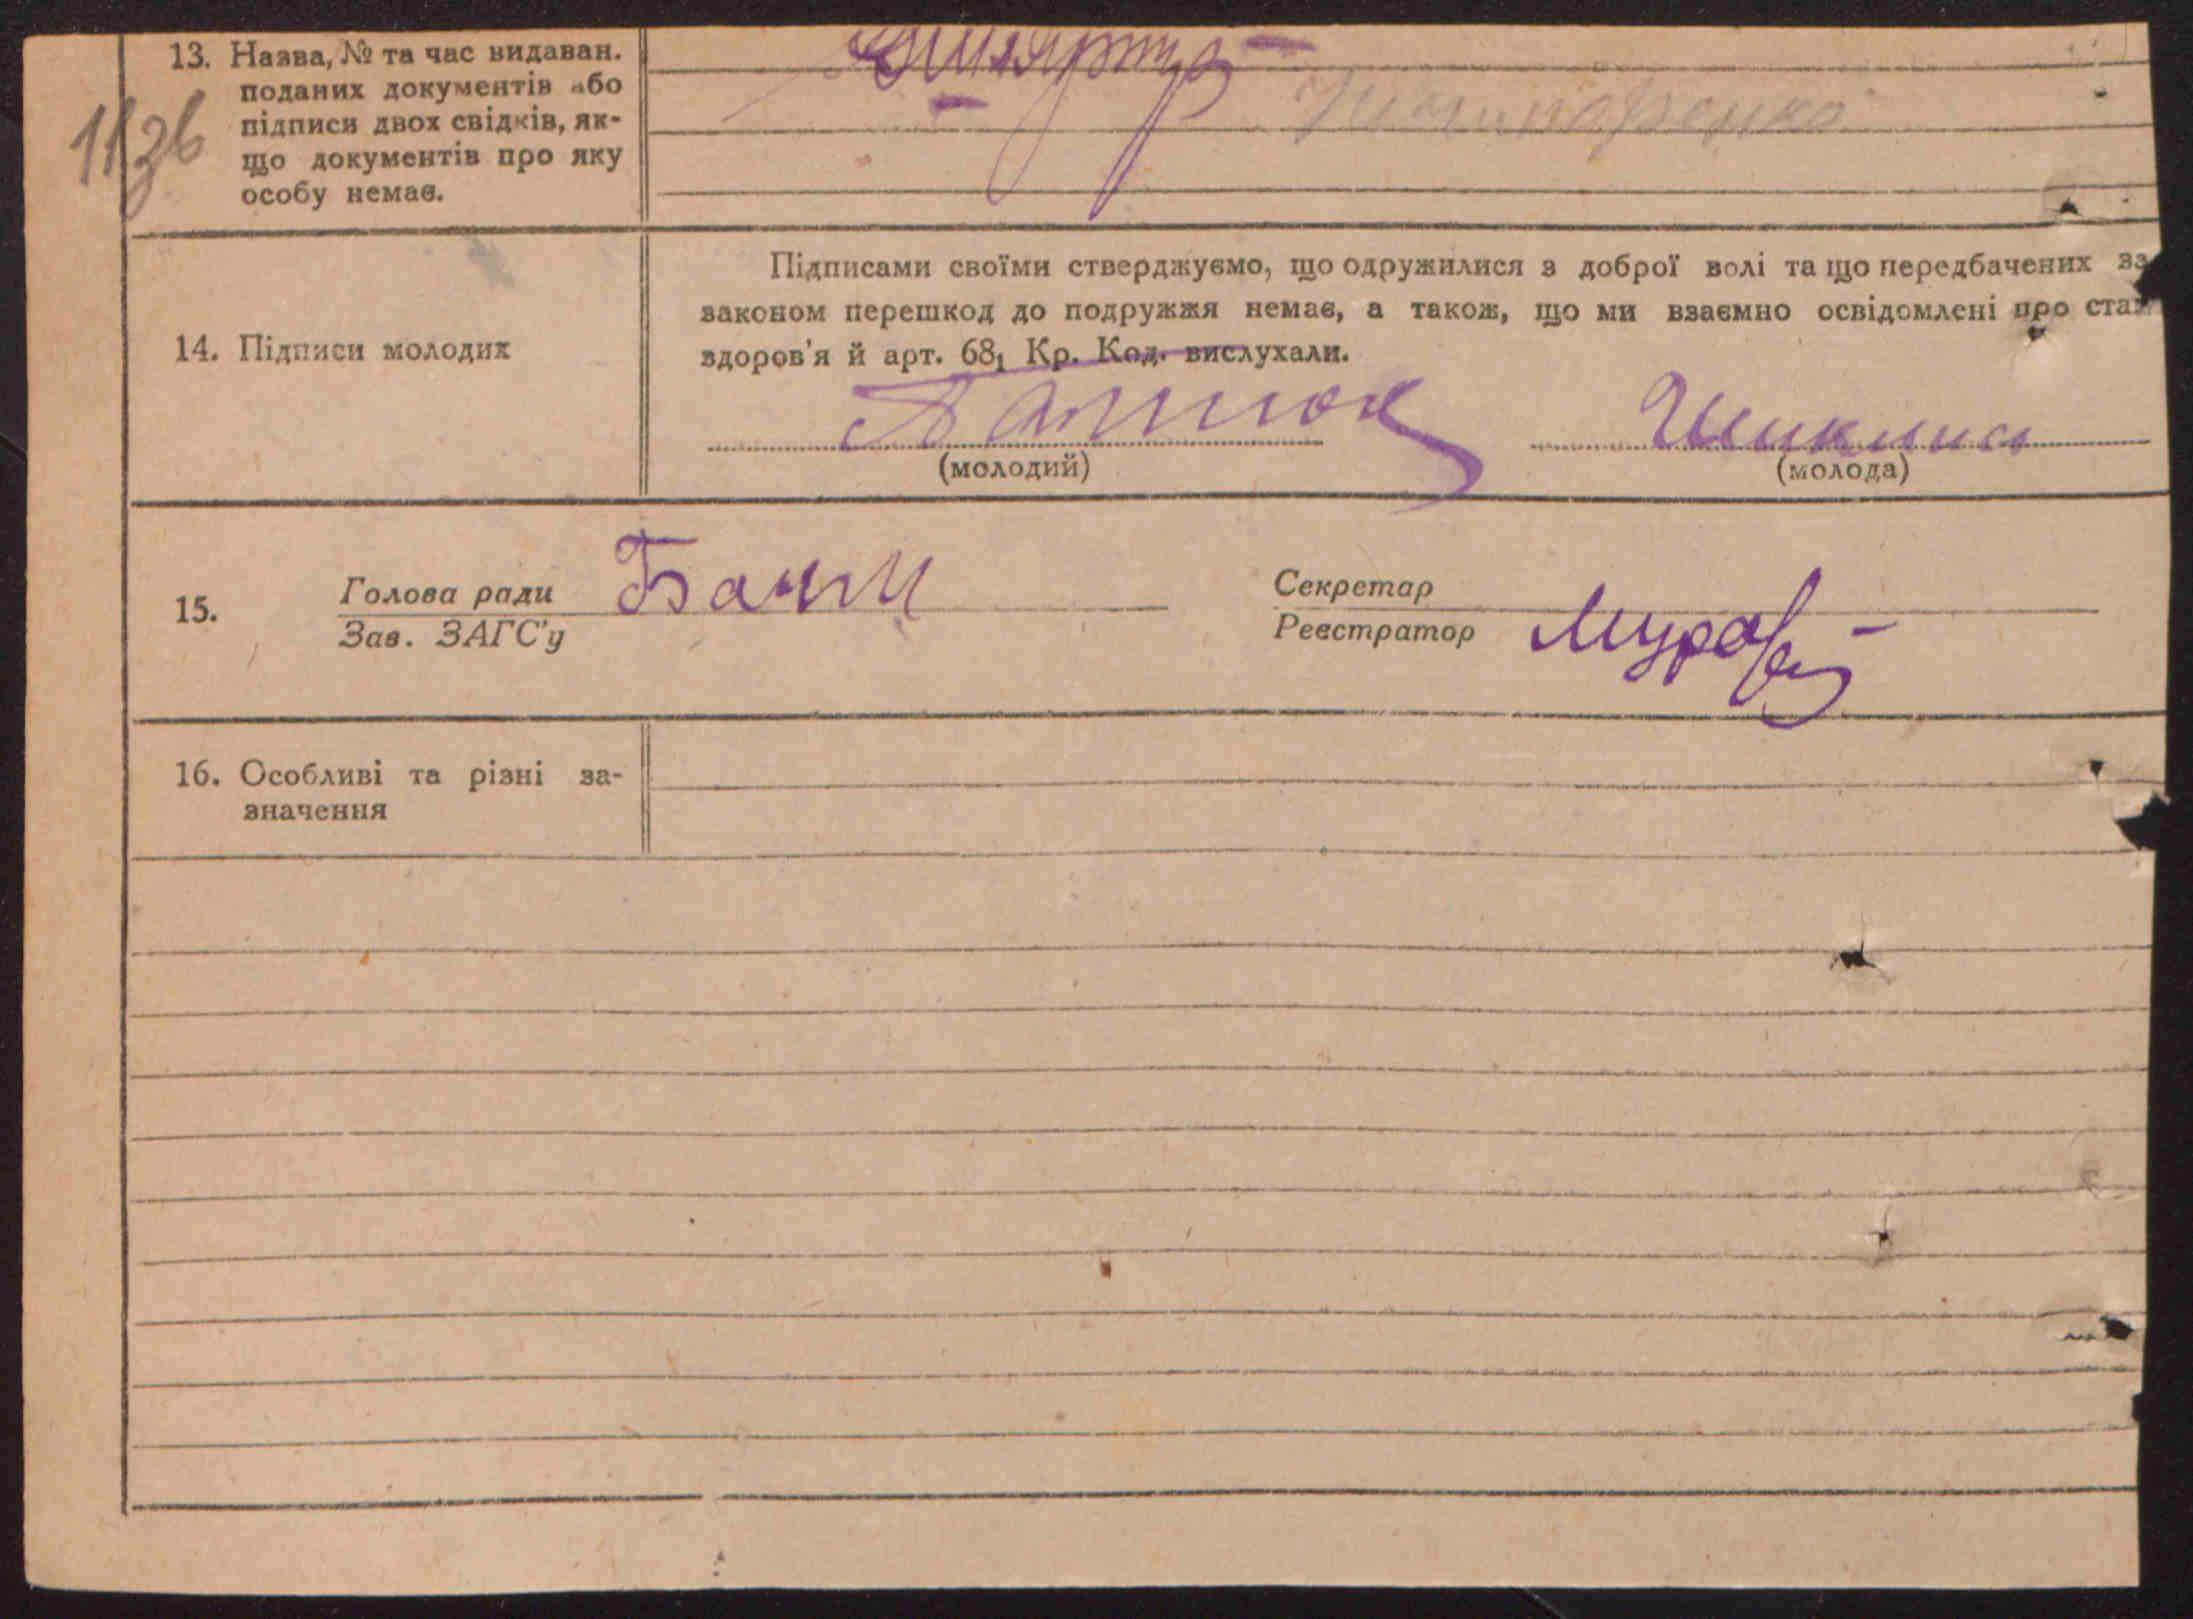 13. Назва, № та час видаван.
поданих документів або
підписи двох свідків, як-
що документів про яку
особу немає.
1136
14. Підписи молодих
Підписами своїми стверджуємо, що одружилися з доброї волі та що передбачених за
законом перешкод до подружжя немає, а також, що ми взаємно освідомлені про стан
здоров'я й арт. 68₁ Кр. Код. вислухали.
(молодий) (молода)
15. Голова ради Секретар
Зав. ЗАГС'у Реєстратор
16. Особливі та різні за-
значення